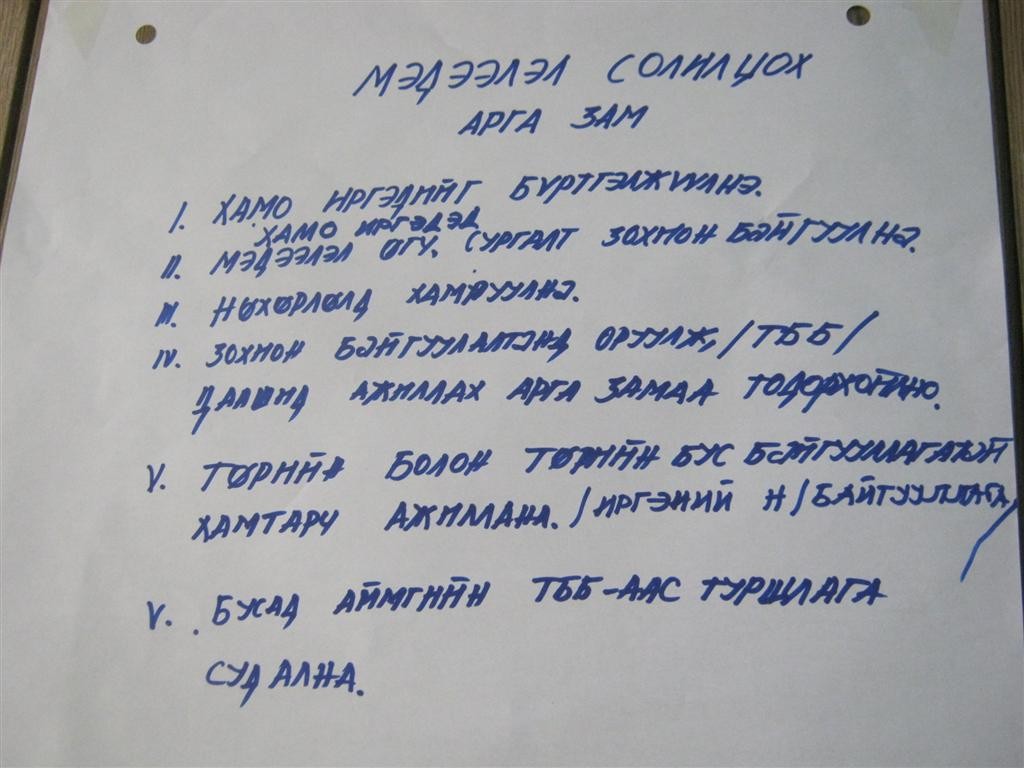 МЭДЭЭЛЭЛ СОЛИЛЦОХ
АРГА ЗАМ
I. ХАМО ИРГЭДИЙГ БҮРТГЭЛЖҮҮЛНЭ.
ХАМО ИРГЭДЭД
II. МЭДЭЭЛЭЛ ӨГҮ, СУРГАЛТ ЗОХИОН БАЙГУУЛНА.
III. НӨХӨРЛӨЛД ХАМРУУЛНА.
IV. ЗОХИОН БАЙГУУЛАЛТАНД ОРУУЛЖ, /ТББ/
ЦААШИД АЖИЛЛАХ АРГА ЗАМАА ТОДОРХОЙЛНО.
V. ТӨРИЙН БОЛОН ТӨРИЙН БУС БАЙГУУЛЛАГАТАЙ
ХАМТАРЧ АЖИЛЛАНА. /ИРГЭНИЙ Н/БАЙГУУЛЛАГА/
V. БУСАД АЙМГИЙН ТББ-ААС ТУРШЛАГА
СУДАЛНА.